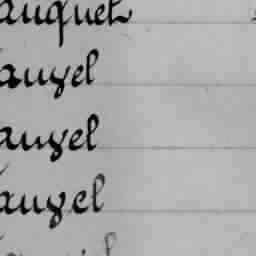 auquet
auyel
auyel
auyel